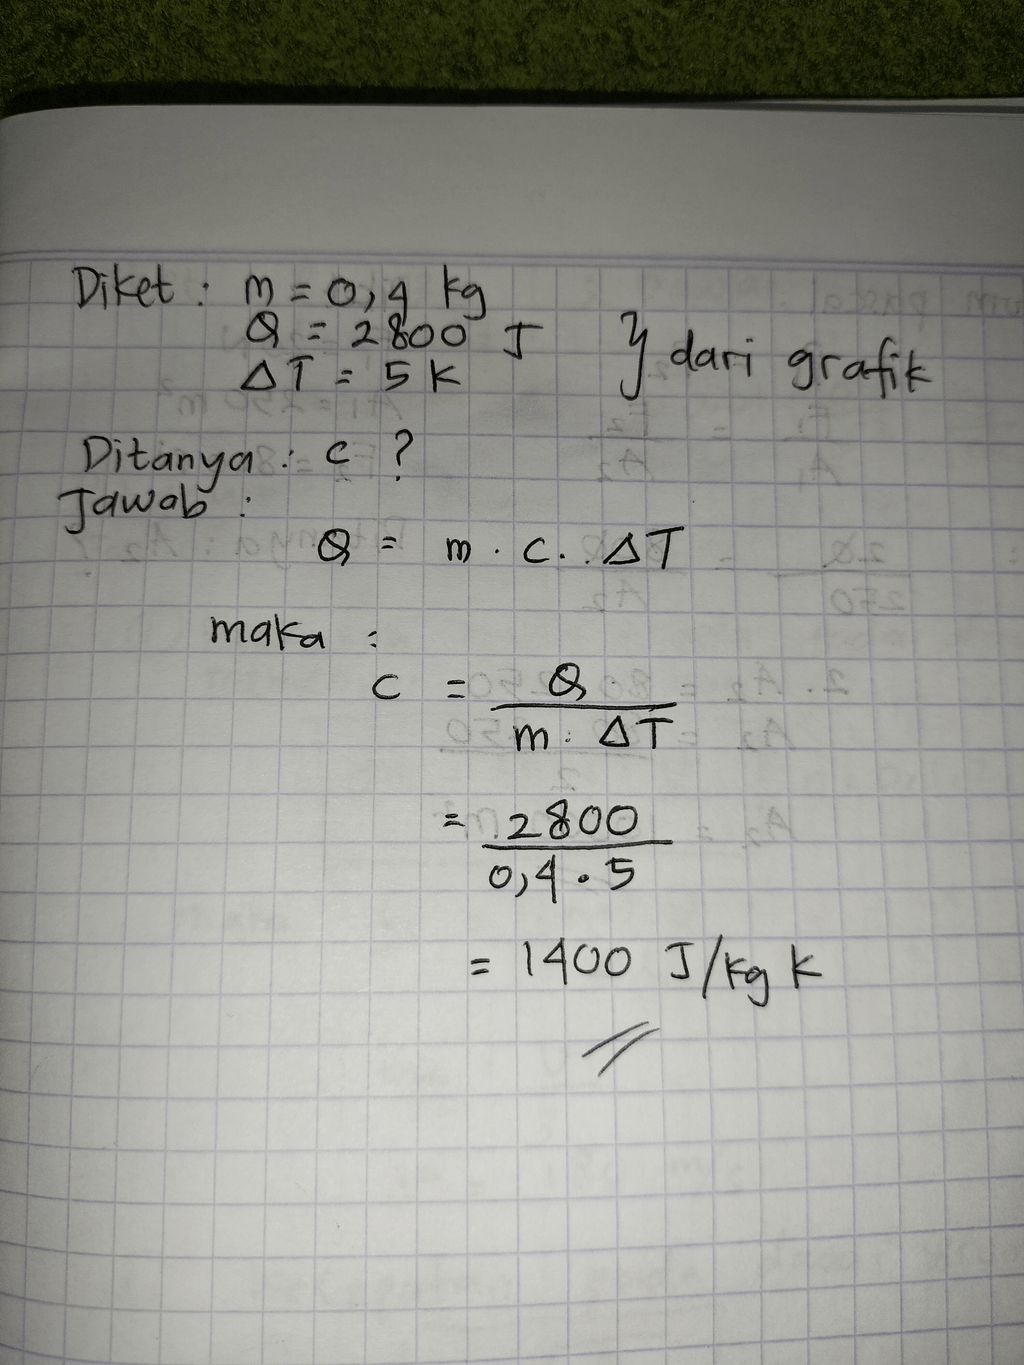 Diket : m = 0,4 kg
Q = 2800 J } dari grafik
ΔT = 5 K
Ditanya : c ?
Jawab :
Q = m . c . ΔT
maka :
c = Q
m . ΔT
= 2800
0,4 . 5
= 1400 J/kg K